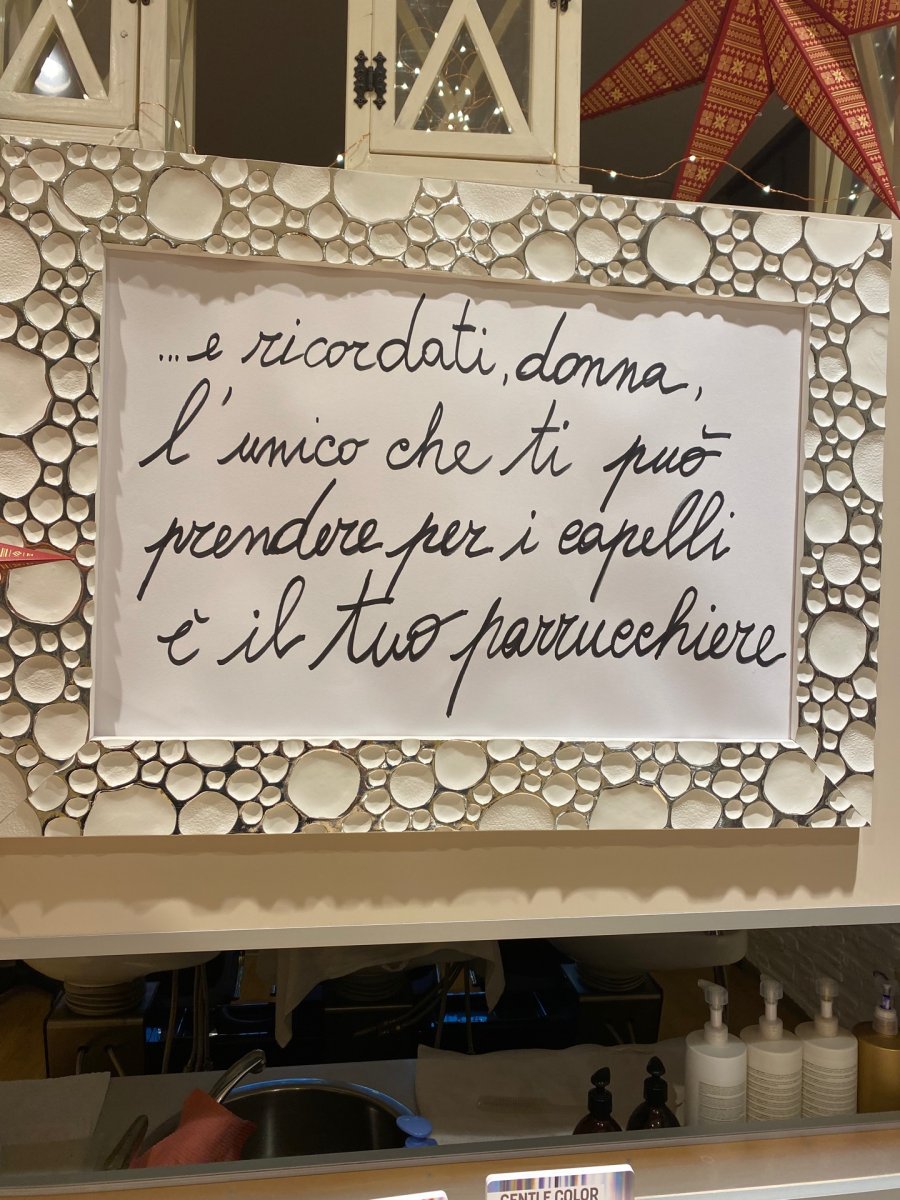 ...e ricordati, donna,
l'unico che ti può
prendere per i capelli
è il tuo parrucchiere
GENTLE COLOR